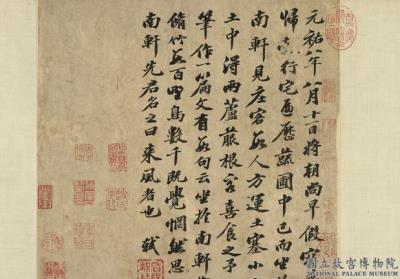 元祐八年八月十一日將朝尚早假寐
歸縠行宅遍歷蔬圃中已而坐
南軒見庄客數人方運土塞小
土中得兩蘆菔根客喜食之予
筆作一篇文有數句云坐於南軒
脩竹數百野鳥數千既覺惘然思
南軒先君名之曰來風者也 軾
國立故宮博物院
NATIONAL PALACE MUSEUM